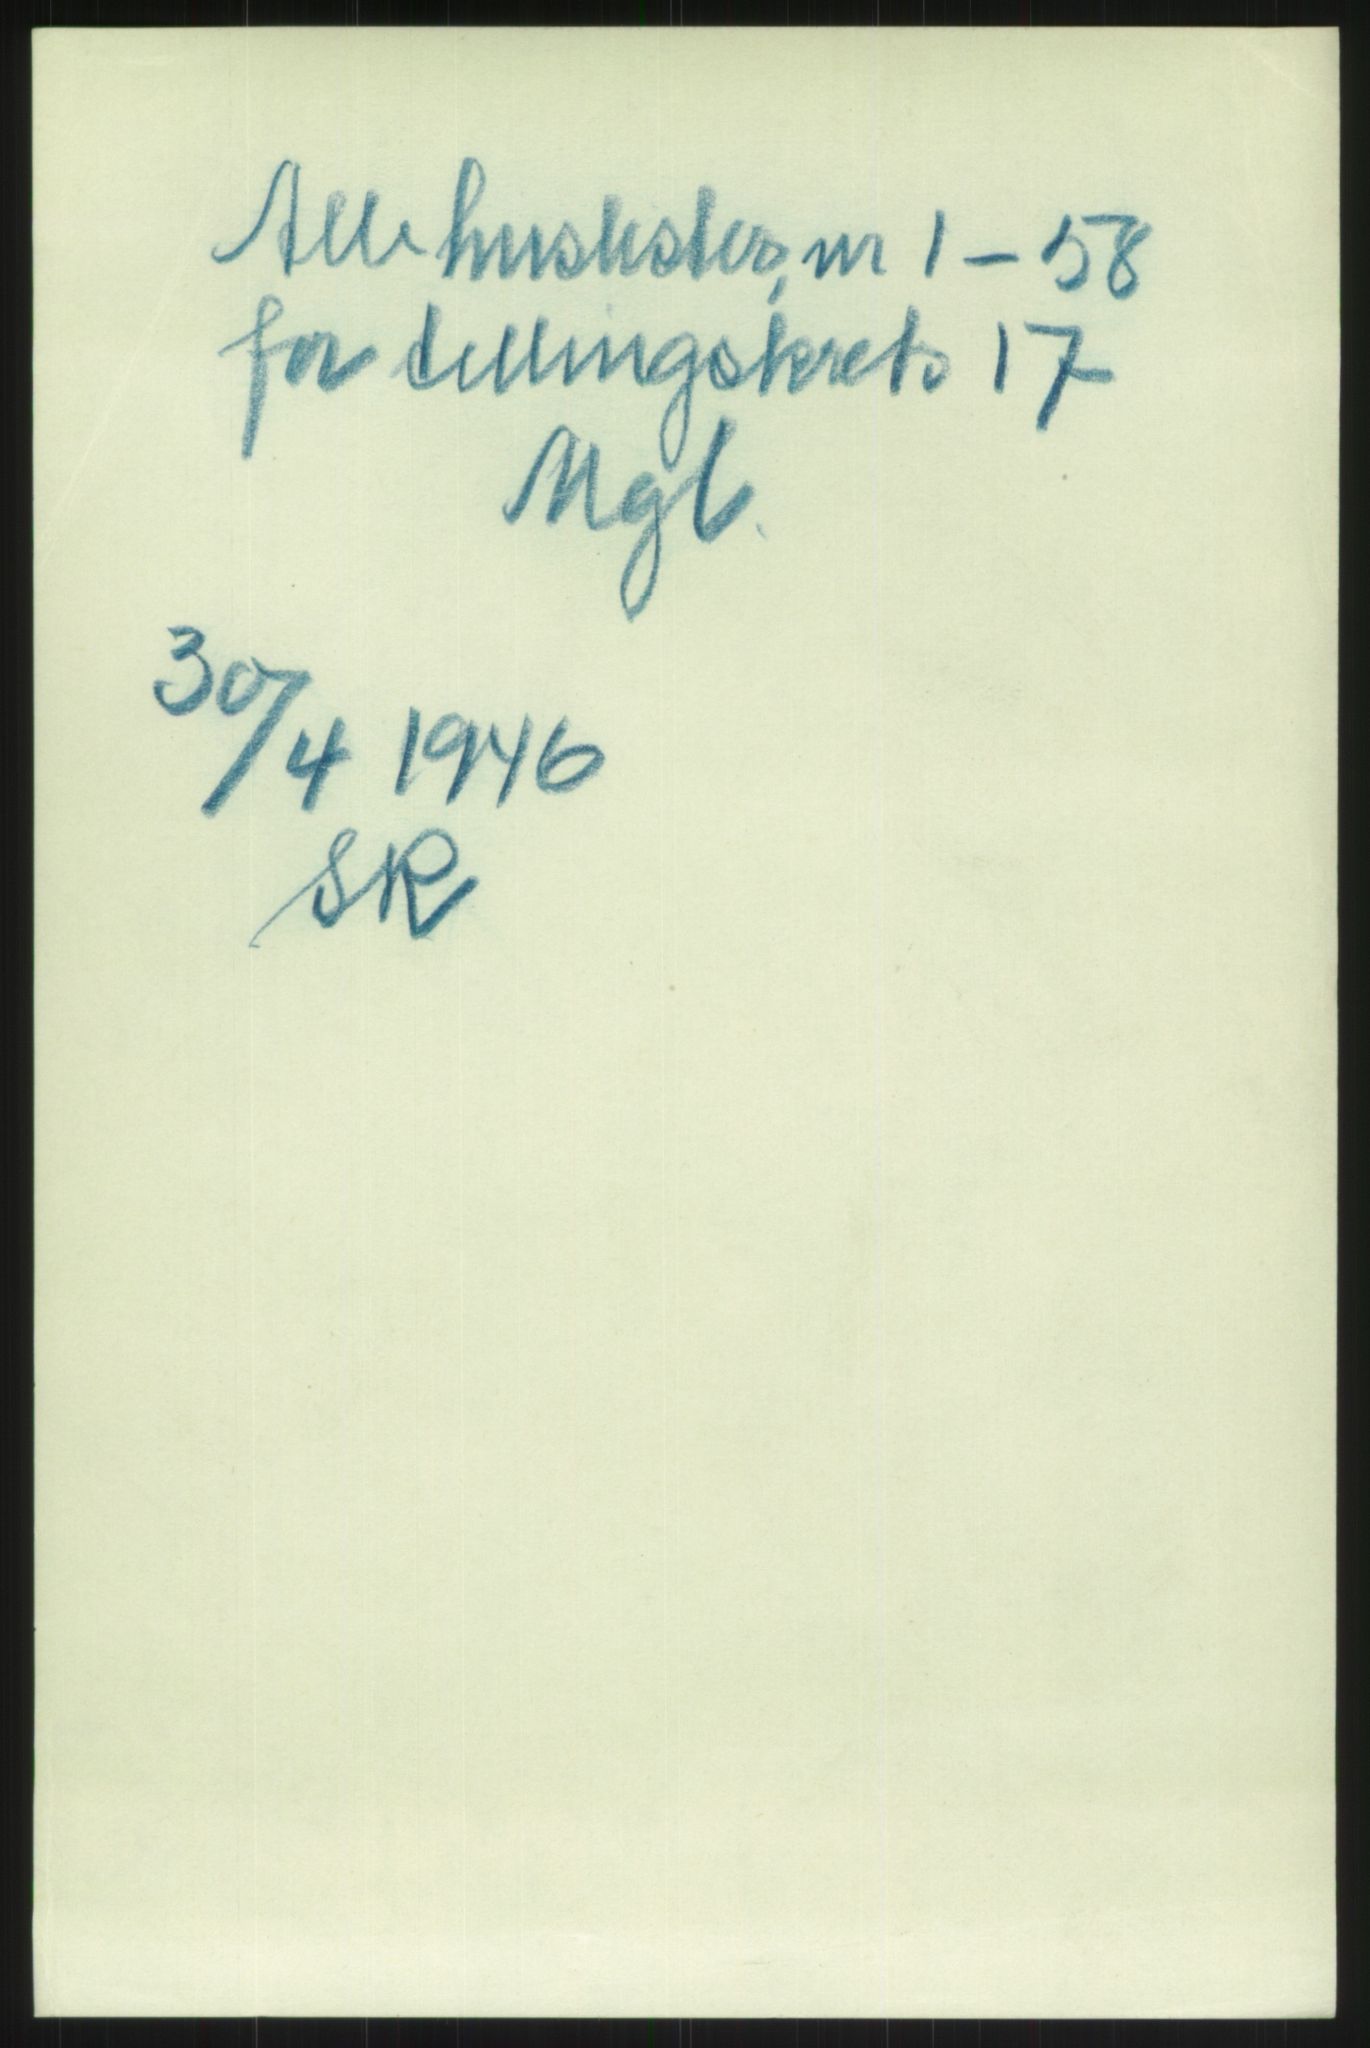 Alle huslister, nr 1 - 58
for tellingskrets 17
Mgl.
30/4 1946
SR